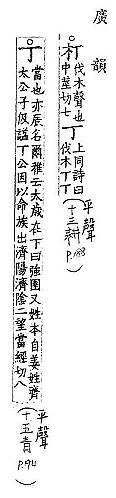 廣韻
○朾
伐木聲也
中莖切七
丁
上同詩曰
伐木丁丁
(平聲
十三耕
P.188)
○丁
當也亦辰名爾雅云太歲在丁曰強圉又姓本自姜姓齊
太公子伋謚丁公因以命族出濟陽濟陰二望當經切八
(平聲
十五青
P.194)